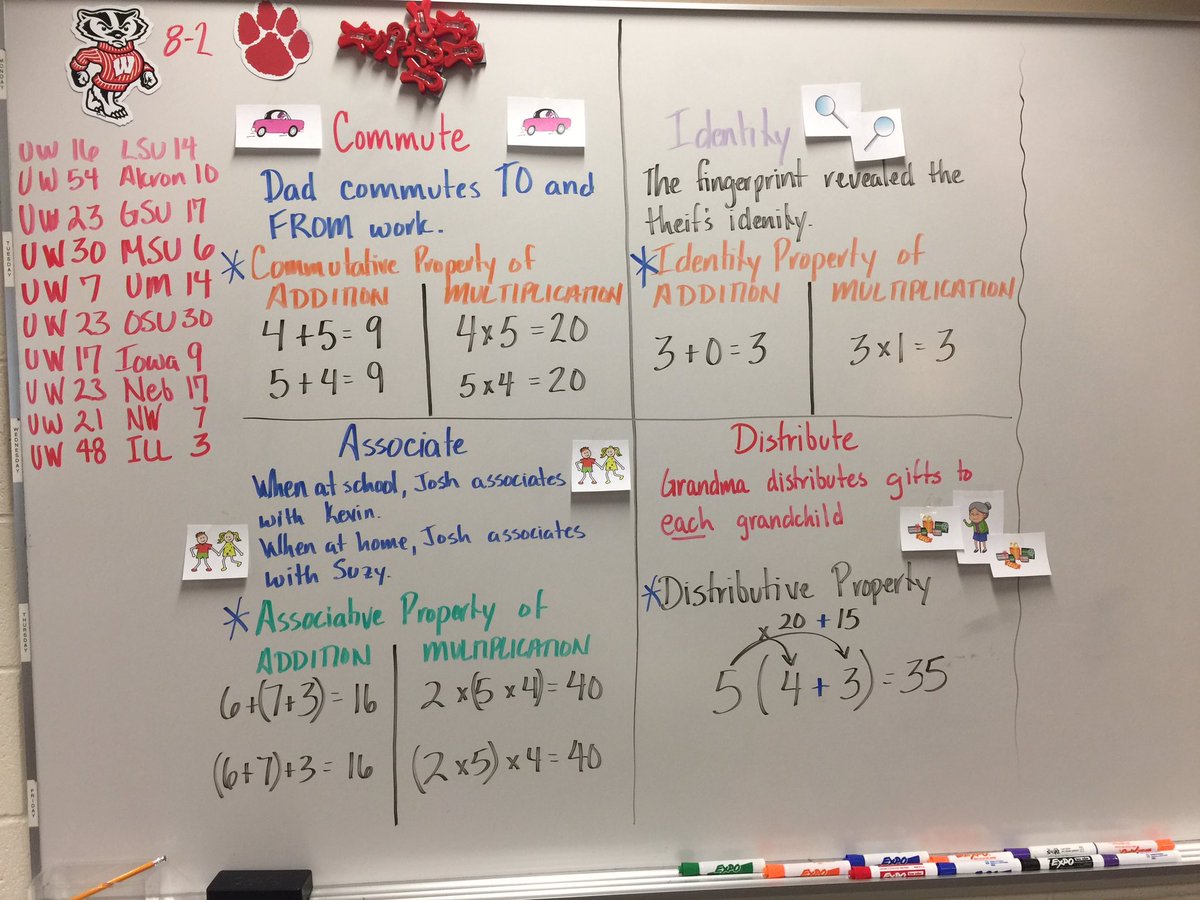 W
8-2
UW 16 LSU 14
UW 54 Akron 10
UW 23 GSU 17
UW 30 MSU 6
UW 7 UM 14
UW 23 OSU 30
UW 17 Iowa 9
UW 23 Neb 17
UW 21 NW 7
UW 48 ILL 3
Commute
Dad commutes TO and
FROM work.
*Commutative Property of
ADDITION MULTIPLICATION
4+5=9 4x5=20
5+4=9 5x4=20
Identity
The fingerprint revealed the
theif's idenity.
*Identity Property of
ADDITION MULTIPLICATION
3+0=3 3x1=3
Associate
When at school, Josh associates
with Kevin.
When at home, Josh associates
with Suzy.
*Associative Property of
ADDITION MULTIPLICATION
6+(7+3)=16 2x(5x4)=40
(6+7)+3=16 (2x5)x4=40
Distribute
Grandma distributes gifts to
each grandchild
*Distributive Property
x 20+15
5(4+3)=35
MONDAY
TUESDAY
WEDNESDAY
THURSDAY
FRIDAY
EXPO
EXPO
EXPO
EXPO
EXPO